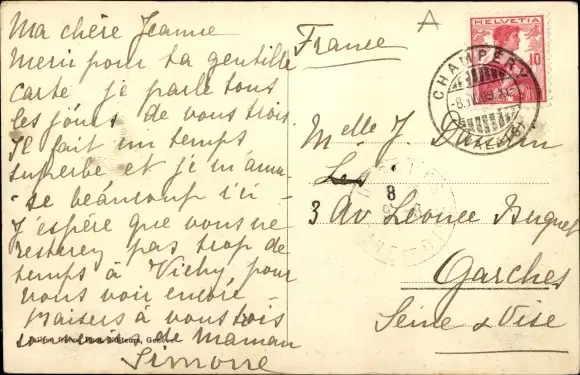 Ma chère Jeanne
Merci pour ta gentille
carte je parle tous
les jours de vous trois
Il fait un temps
superbe et je m'amu-
se beaucoup ici -
J'espère que vous ne
resterez pas trop de
temps à Vichy pour
vous voir encore -
Baisers à vous trois
de maman
Simone
France
HELVETIA
10
CHAMPÉRY
Melle J.
3 Av Léonce Buquet
Garches
Seine & Oise
8
A